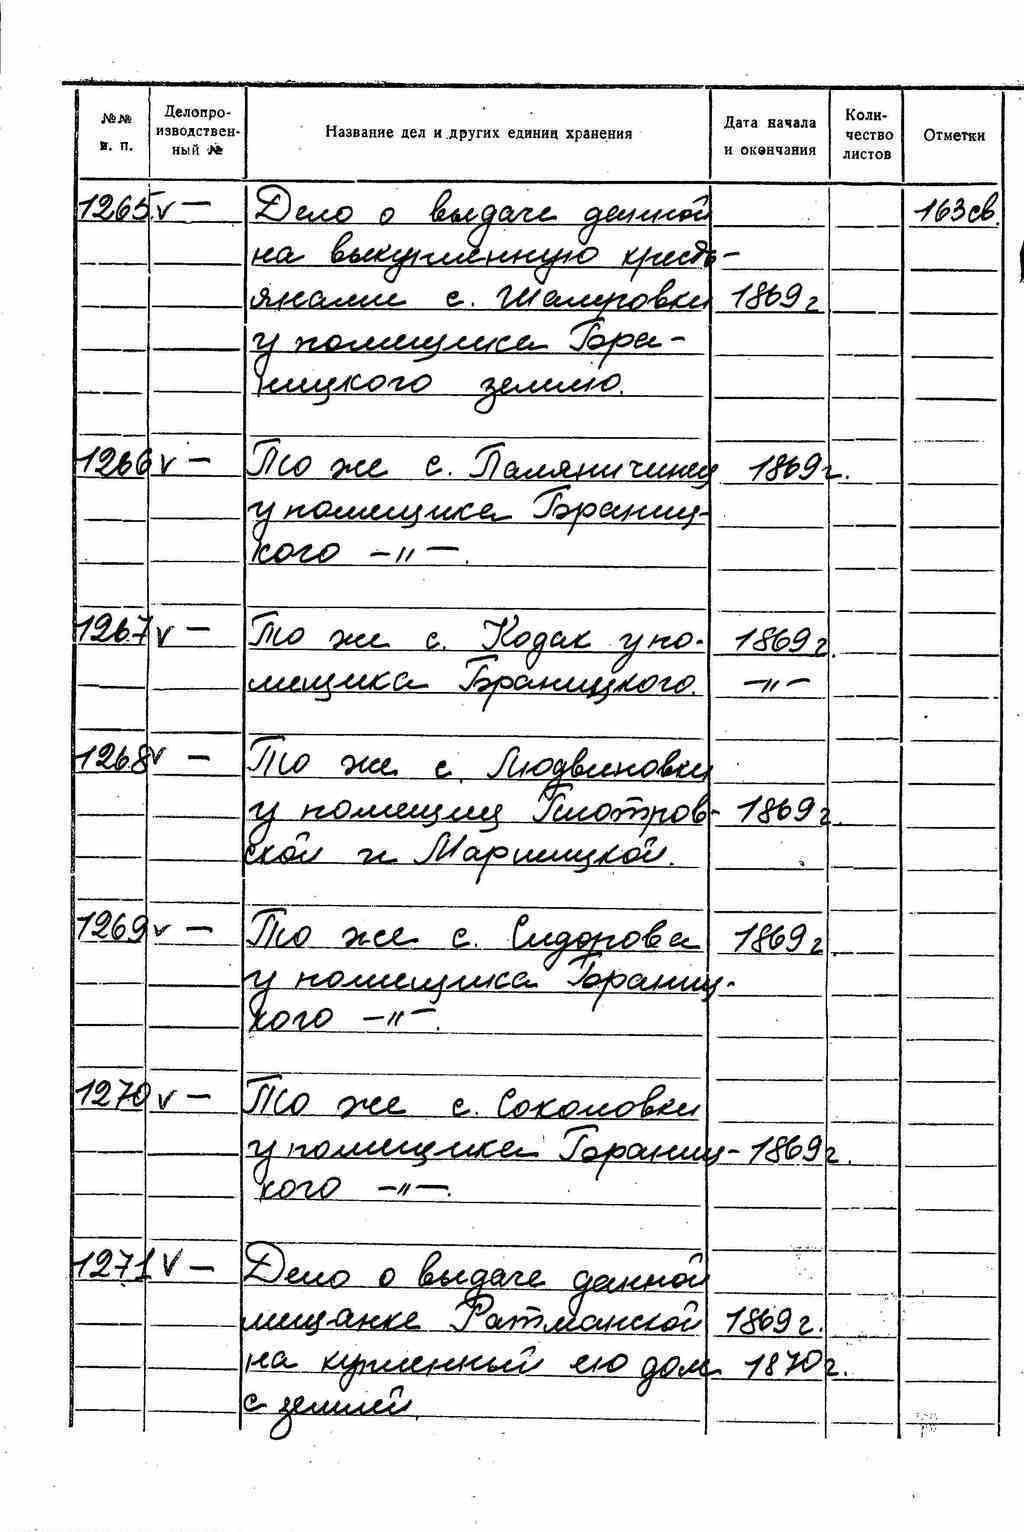 №№ п. п. Делопроизводственный № Название дел и других единиц хранения Дата начала и окончания Количество листов Отметки
1265. v — Дело о выдаче данной 163 св.
на выкупленную кресть-
янами с. Шамровки 1869 г
у помещика Бра-
ницкого землю.
1266 v — То же с. Паляничинец 1869 г.
у помещика Браниц-
кого —"—.
1267 v — То же с. Кодак у по- 1869 г.
мещика Браницкого. —"—
1268 v — То же с. Людвиновки
у помещиц Пиотров- 1869 г.
ской и Мариицкой.
1269 v — То же с. Сидорова 1869 г.
у помещика Браниц-
кого —"—.
1270 v — То же с. Соколовки
у помещика Браниц- 1869 г.
кого —"—.
1271 V — Дело о выдаче данной
мещанке Ратманской 1869 г.
на купленный ею дом 1870 г.
с землей.